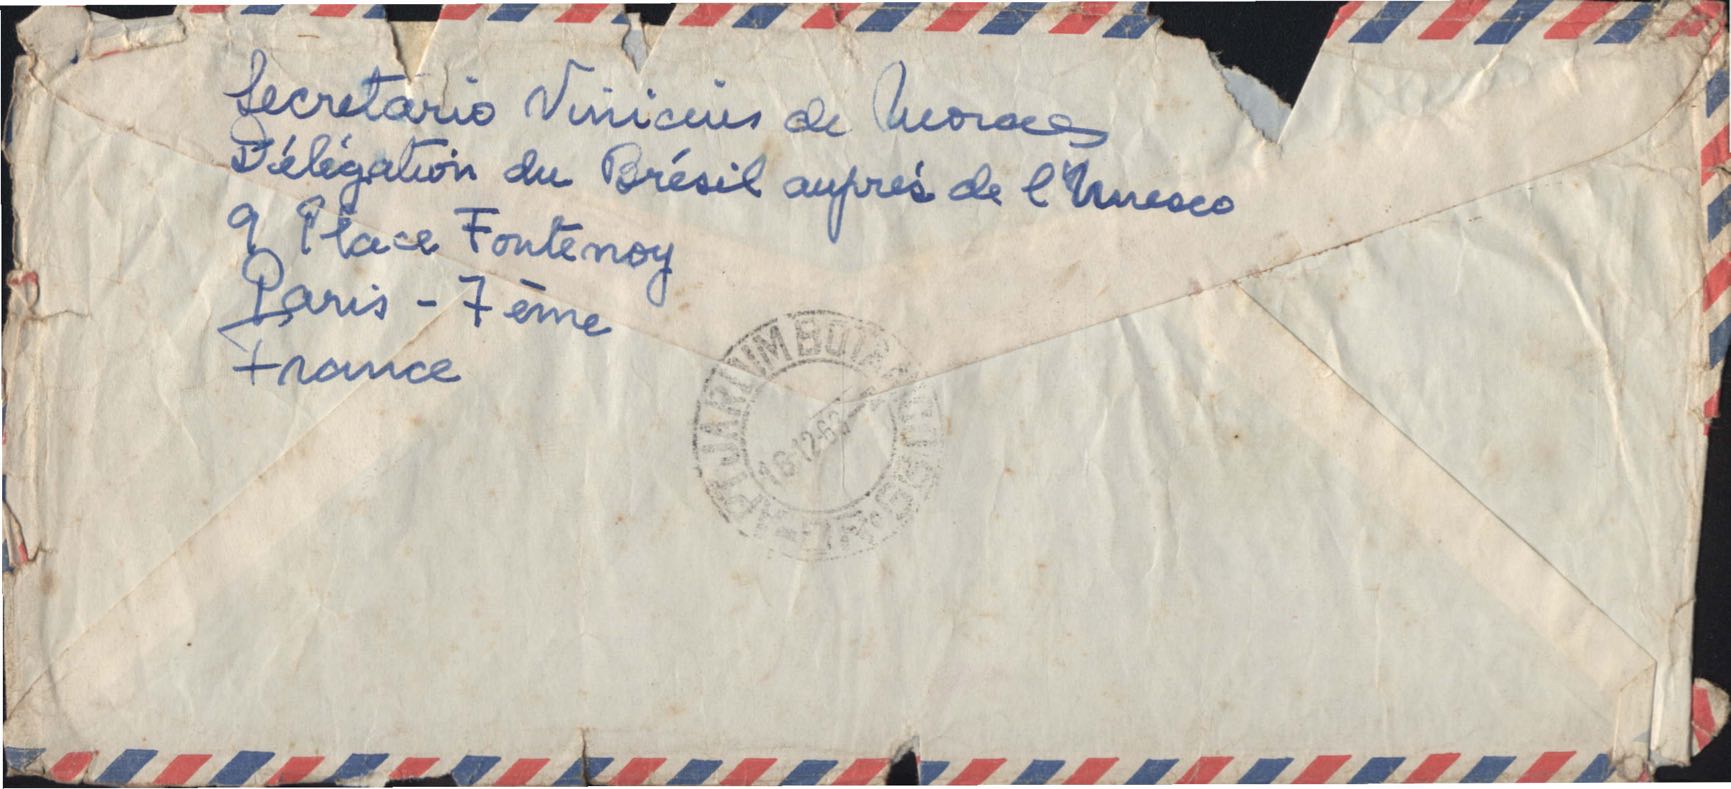 Secretario Vinicius de Moraes
Délégation du Brésil auprés de l'Unesco
9 Place Fontenoy
Paris - 7ème
France
16·12·63